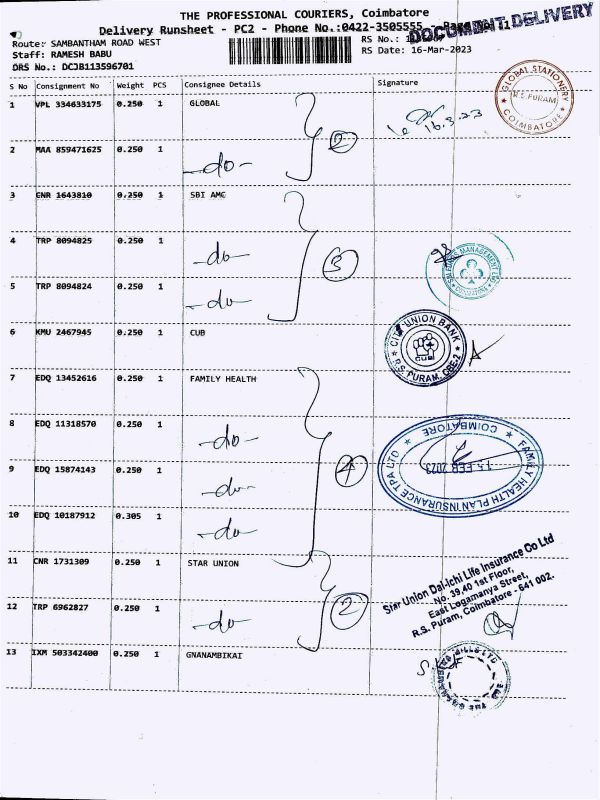 THE PROFESSIONAL COURIERS, Coimbatore
Delivery Runsheet - PC2 - Phone No.:0422-3505555 - Page No
DOCUMENT DELIVERY
Route: SAMBANTHAM ROAD WEST
RS No.:
Staff: RAMESH BABU
RS Date: 16-Mar-2023
DRS No.: DCJB113596701
S No Consignment No Weight PCS Consignee Details Signature
1 VPL 334633175 0.250 1 GLOBAL
2
16.3.23
GLOBAL STATIONERY
R.S. PURAM
COIMBATORE
2 MAA 859471625 0.250 1 -do-
3 CNR 1643810 0.250 1 SBI AMC
4 TRP 8094825 0.250 1 -do-
3
5 TRP 8094824 0.250 1 -do-
6 KMU 2467945 0.250 1 CUB
CITY UNION BANK
CUB
R.S. PURAM, CBE-2
7 EDQ 13452616 0.250 1 FAMILY HEALTH
8 EDQ 11318570 0.250 1 -do-
4
FAMILY HEALTH PLAN INSURANCE TPA LTD
COIMBATORE
FEB 2023
9 EDQ 15874143 0.250 1 -do-
10 EDQ 10187912 0.305 1 -do-
11 CNR 1731309 0.250 1 STAR UNION
2
Star Union Dai-ichi Life Insurance Co Ltd
No. 39,40 1st Floor,
East Logamanya Street,
R.S. Puram, Coimbatore - 641 002.
12 TRP 6962827 0.250 1 -do-
13 IXM 503342400 0.250 1 GNANAMBIKAI